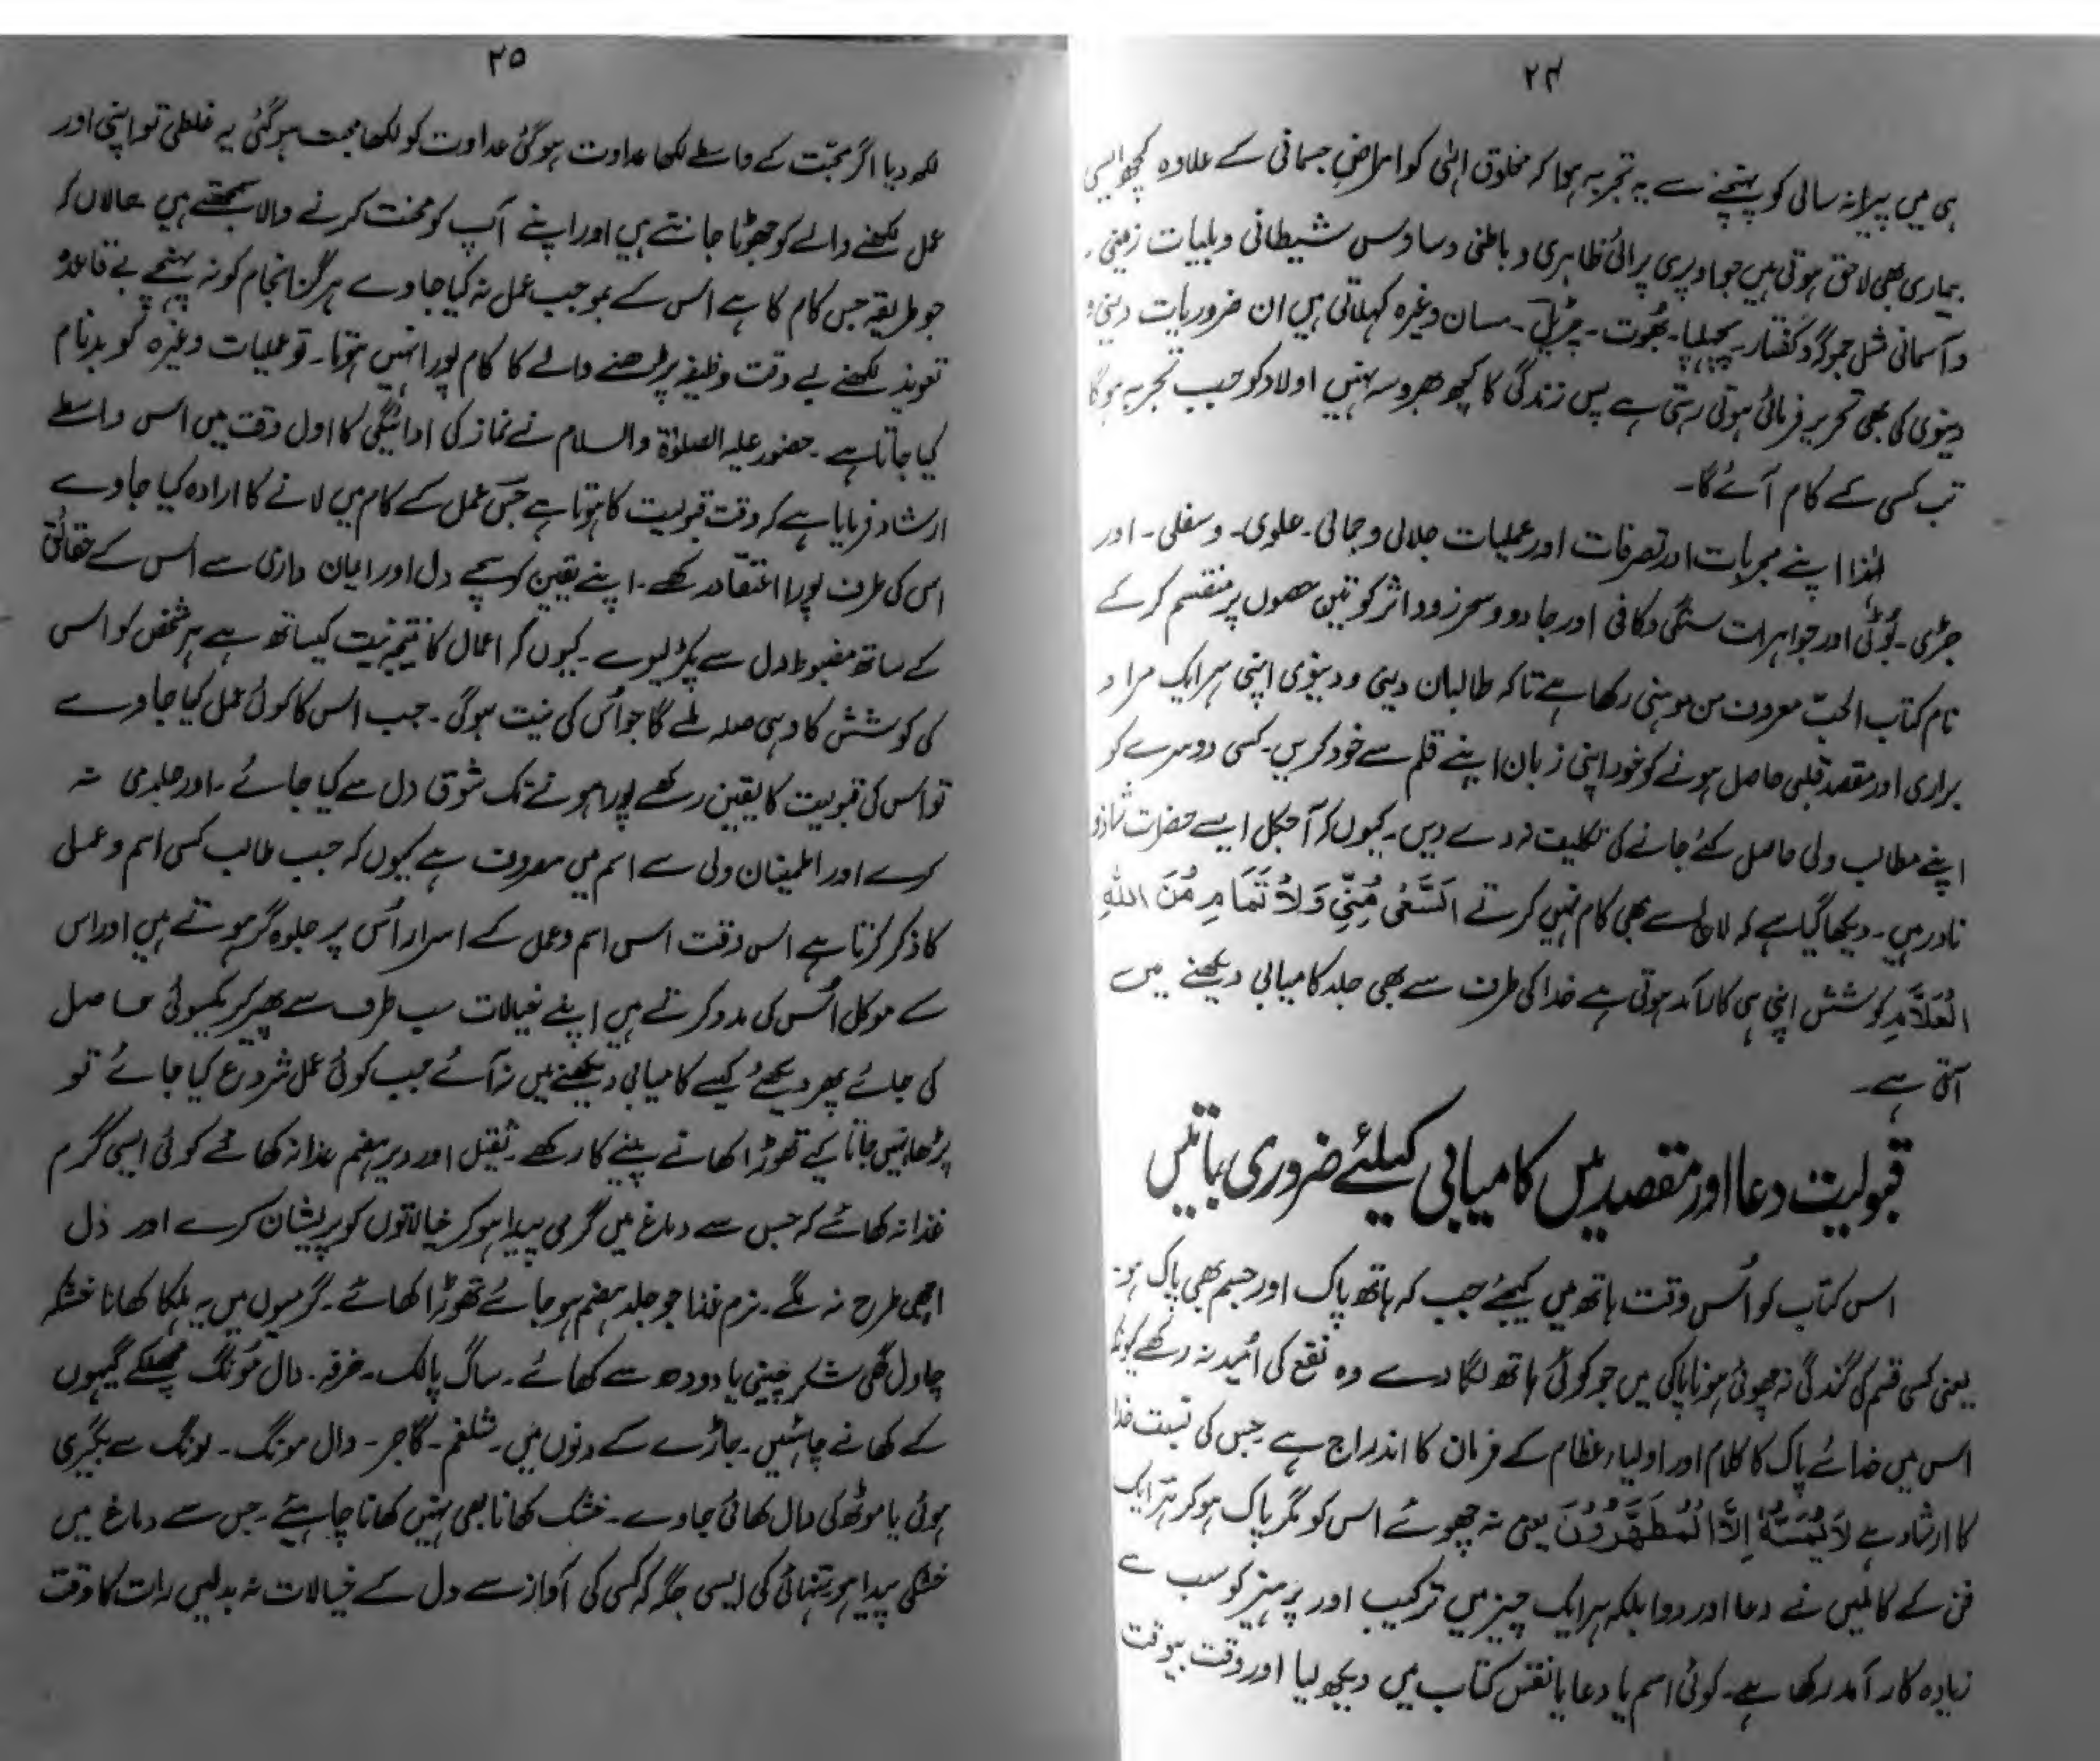 ۲۴
ہی میں پیرانہ سالی کو پہنچنے سے یہ تجربہ ہوا کہ مخلوق الٰہی کو امراضِ جسمانی کے علاوہ کچھ ایسی
بیماری بھی لاحق ہوتی ہیں جو اوپری پرائی ظاہری و باطنی وساوس شیطانی و بلیات زمینی
و آسمانی مثل جوگر و کفتار۔ چھلپا۔ بھُوت۔ چڑیل۔ مسان وغیرہ کہلاتی ہیں ان ضروریات دینی و
دینوی کی بھی تحریر فرمائی ہوتی رہتی ہے پس زندگی کا کچھ بھروسہ نہیں اولاد کو جب تجربہ ہوگا
تب کسی کے کام آئے گا۔
لہٰذا اپنے مجربات اور تصرفات اور عملیات جلالی و جمالی۔ علوی۔ و سفلی۔ اور
جڑی۔ بُوٹی اور جواہرات سنگی و کافی اور جادو و سحر زود اثر کو تین حصوں پر منقسم کر کے
نام کتاب الحبّ معروف من موہنی رکھا ہے تاکہ طالبان دینی و دینوی اپنی ہر ایک مراد
براری اور مقصد قلبی حاصل ہونے کو خود اپنی زبان اپنے قلم سے خود کریں۔ کسی دوسرے کو
اپنے مطالب ولی حاصل کئے جانے کی تکلیف نہ دے دیں۔ کیوں کہ آجکل ایسے حضرات شاذو
نادر ہیں۔ دیکھا گیا ہے کہ لالچ سے بھی کام نہیں کرتے اَلسَّعْیُ مُنِّیِّ وَلاُ تَمَامِ مُنَ اللہِ
الْعَلَّامِ کوشش اپنی ہی کارآمد ہوتی ہے خدا کی طرف سے بھی جلد کامیابی دیکھنے میں
آتی ہے۔
قبولیت دعا اور مقصد میں کامیابی کیلئے ضروری باتیں
اس کتاب کو اُس وقت ہاتھ میں لیجئے جب کہ ہاتھ پاک اور جسم بھی پاک ہو۔
یعنی کسی قسم کی گندگی نہ چھوئی ہو ناپاکی میں جو کوئی ہاتھ لگا دے وہ نفع کی اُمید نہ رکھے کیونکہ
اس میں خدائے پاک کا کلام اور اولیاء عظام کے فرمان کا اندراج ہے جس کی نسبت خدا
کا ارشاد ہے لَا یَمَسَّہٗ اِلَّا الْمُطَہَّرُوْنَ یعنی نہ چھوئے اس کو مگر پاک ہو کر ہر ایک
فن کے کاملین نے دعا اور دوا بلکہ ہر ایک چیز میں ترکیب اور پرہیز کو سب سے
زیادہ کار آمد رکھا ہے۔ کوئی اسم یا دعا یا نقش کتاب میں دیکھ لیا اور وقت بیوقت
۲۵
لکھ دیا اگر محبّت کے واسطے لکھا عداوت ہو گئی عداوت کو لکھا محبت ہو گئی یہ غلطی تو اپنی اور
عمل لکھنے والے کو جھوٹا جانتے ہیں اور اپنے آپ کو محنت کرنے والا سمجھتے ہیں حالاں کہ
جو طریقہ جس کام کا ہے اس کے بموجب عمل نہ کیا جاوے ہرگز انجام کو نہ پہنچے بے قاعدہ
تعویذ لکھنے بے وقت وظیفہ پڑھنے والے کا کام پورا نہیں ہوتا۔ تو عملیات وغیرہ کو بدنام
کیا جاتا ہے۔ حضور علیہ الصلوٰۃ والسلام نے نماز کی ادائیگی کا اول وقت میں اس واسطے
ارشاد فرمایا ہے کہ وقت قبولیت کا ہوتا ہے جس عمل کے کام میں لانے کا ارادہ کیا جاوے
اس کی طرف پورا اعتقاد رکھے۔ اپنے یقین کو سچے دل اور ایمان داری سے اس کے حقائق
کے ساتھ مضبوط دل سے پکڑ لیوے۔ کیوں کہ اعمال کا نتیجہ نیت کیساتھ ہے ہر شخص کو اس
کی کوشش کا وہی صلہ ملے گا جو اُس کی نیت ہوگی۔ جب اس کا کوئی عمل کیا جاوے
تو اس کی قبولیت کا یقین رکھے پورا ہونے تک شوق دل سے کیا جائے۔ اور جلدی نہ
کرے اور اطمینان ولی سے اسم میں معروف ہے کیوں کہ جب طالب کسی اسم و عملی
کا ذکر کرتا ہے اس وقت اس اسم و عمل کے اسرار اُس پر جلوہ گر ہوتے ہیں اور اس
کے موکل اُس کی مدد کرتے ہیں اپنے خیالات سب طرف سے پھیر کر یکسوئی حاصل
کی جائے پھر دیکھے کیسے کامیابی دیکھنے میں نہ آئے جب کوئی عمل شروع کیا جائے تو
پڑھا نہیں جاتا کے تھوڑا کھانے پینے کا رکھے۔ ثقیل اور دیر ہضم غذا نہ کھائے کوئی ایسی گرم
غذا نہ کھائے کہ جس سے دماغ میں گرمی پیدا ہو کر خیالاتوں کو پریشان کرے اور دل
اچھی طرح نہ لگے۔ نرم غذا جو جلد ہضم ہو جائے تھوڑا کھائے۔ گرمیوں میں یہ ہلکا کھانا خشکہ
چاول گھی شکر چینی یا دودھ سے کھائے۔ ساگ پالک۔ خرفہ۔ دال مُونگ چھلکے گیہوں
کے کھانے چاہئیں۔ جاڑے کے دنوں میں۔ شلغم۔ گاجر۔ دال مونگ۔ لونگ سے بگری
ہوئی یا موٹھ کی دال کھائی جاوے۔ خشک کھانا بھی نہیں کھانا چاہیئے۔ جس سے دماغ میں
خشکی پیدا ہو تنہائی کی ایسی جگہ کہ کسی کی آواز سے دل کے خیالات نہ بدلیں رات کا وقت